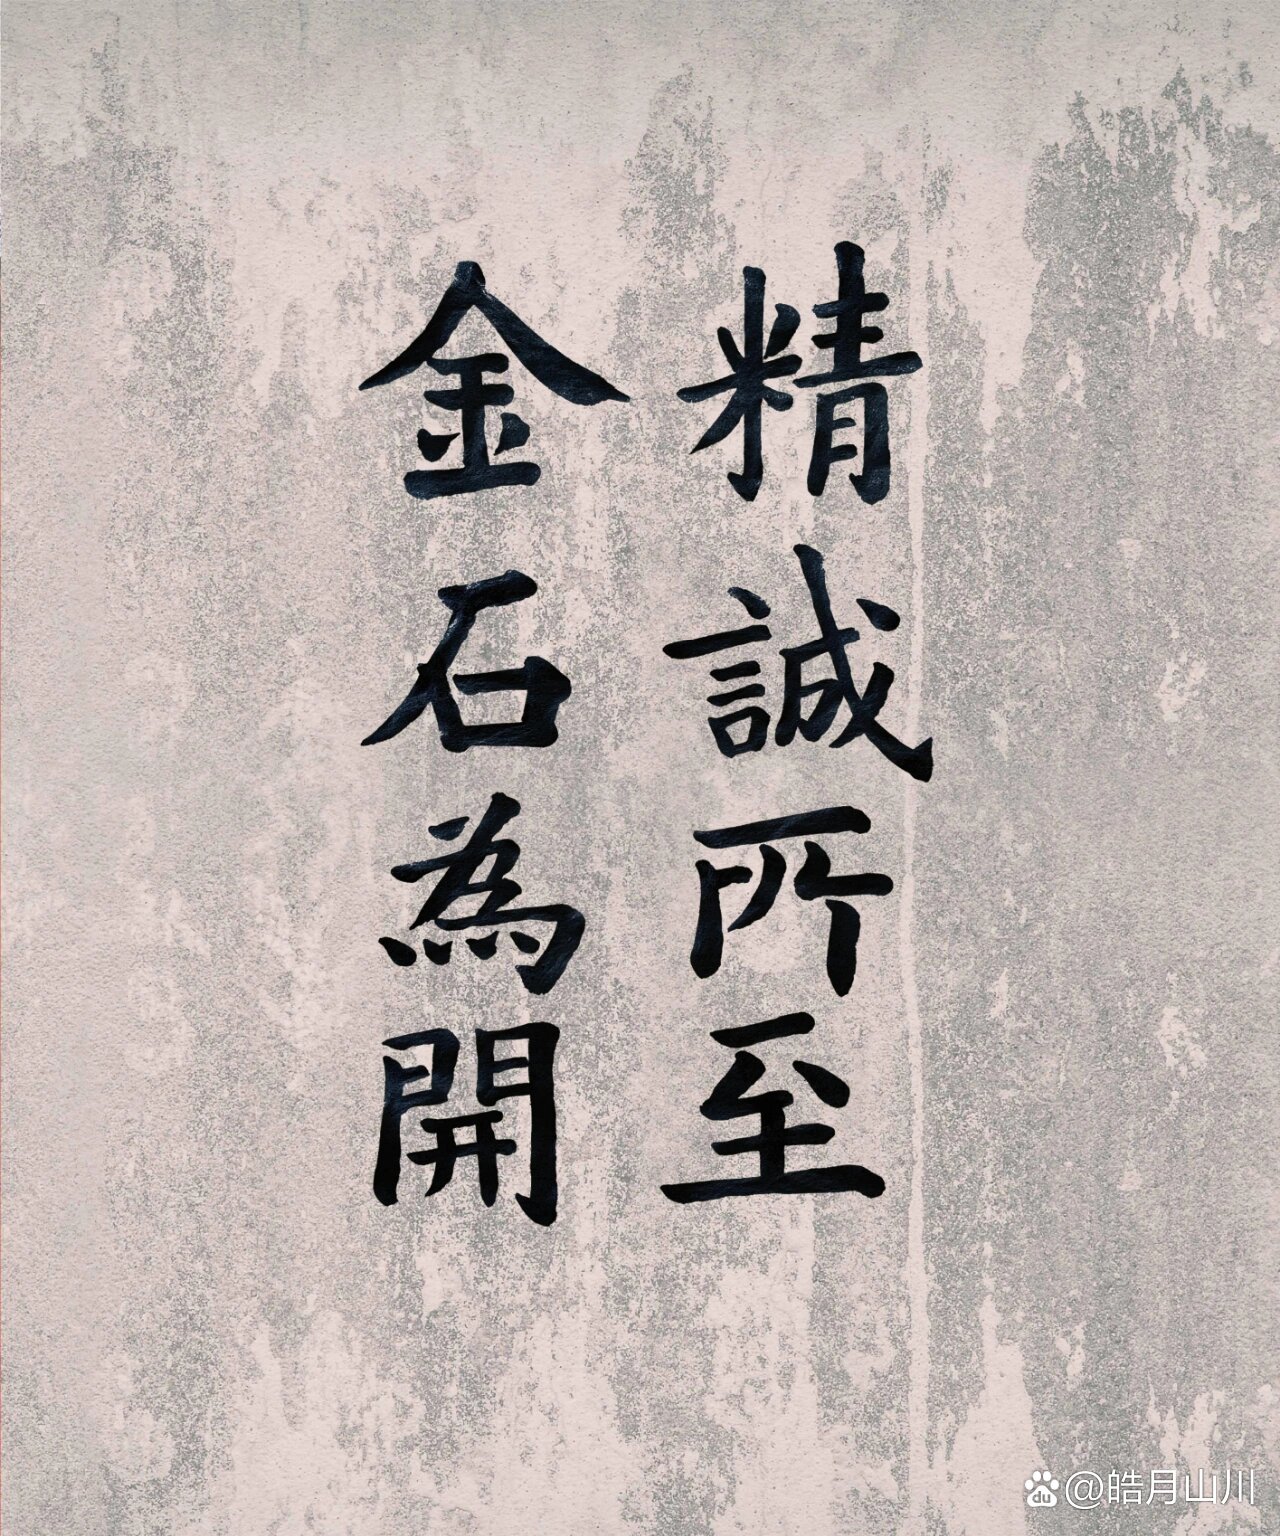 精誠所至
金石為開
du @皓月山川